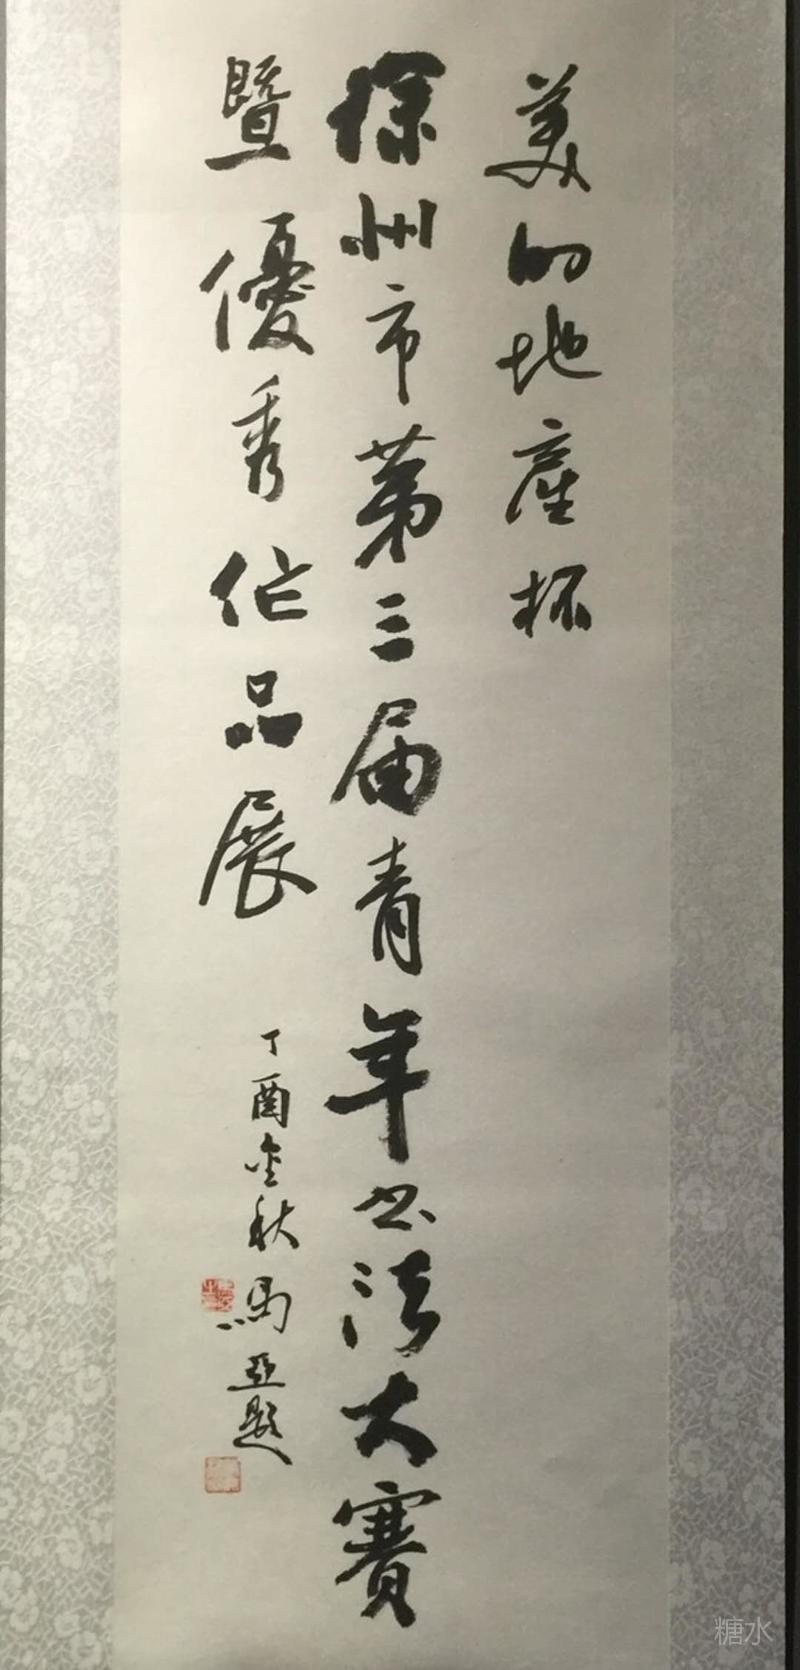 美的地產杯
徐州市第三届青年书法大賽
暨優秀作品展
丁酉金秋馬亞題
糖水